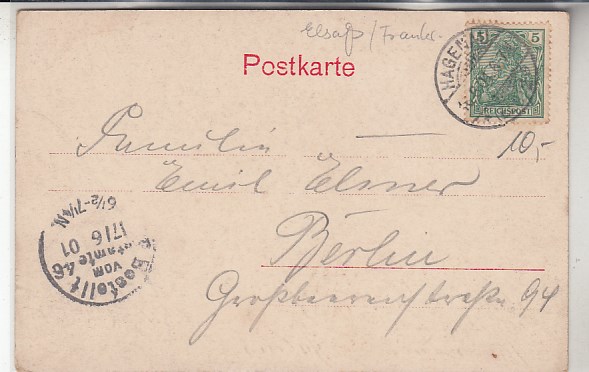 Elsaß/Frankr.
Postkarte
5 5
REICHSPOST
HAGENAU
10,-
Familie
Emil Elsner
Berlin
Großbeerenstraße 94
Bestellt
vom
Postamte 46
17/6 01
6½-7¼N.